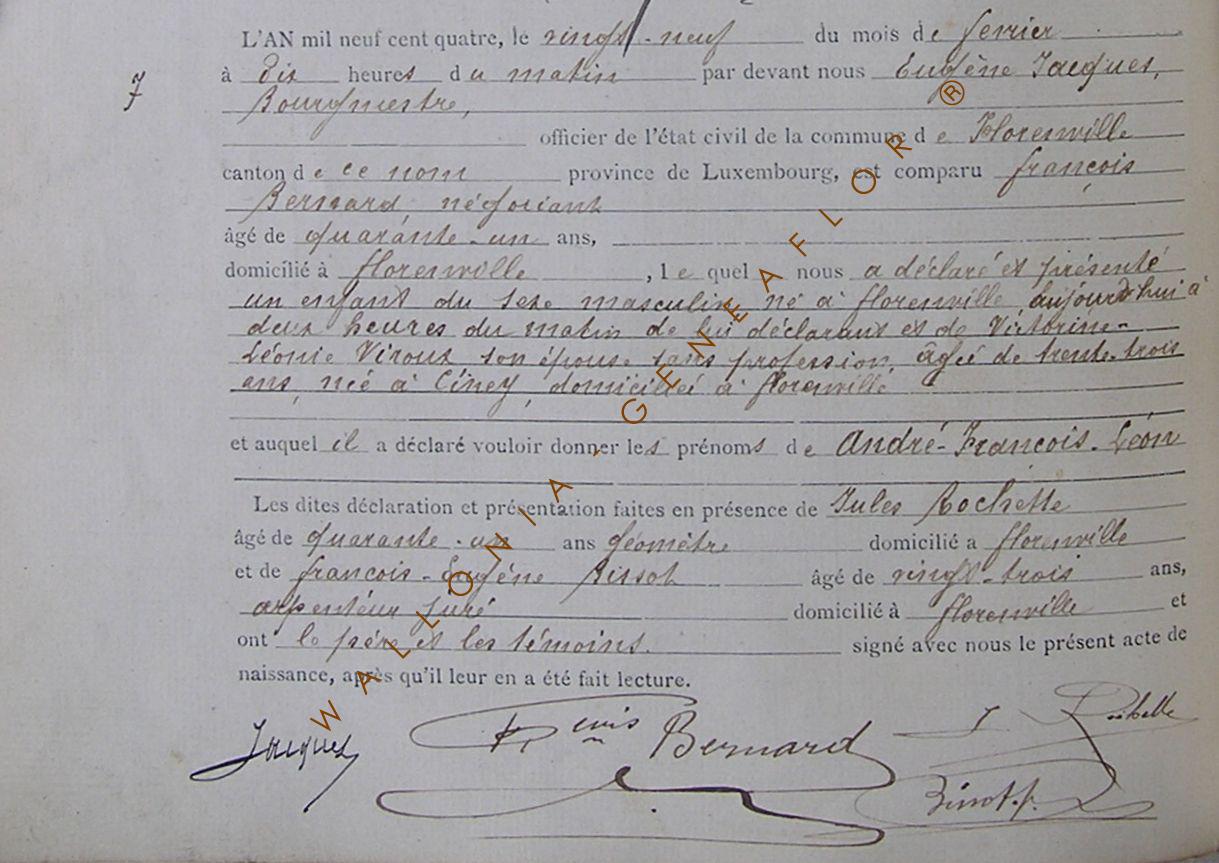 L'AN mil neuf cent quatre, le vingt-neuf du mois de février
7 à dix heures du matin par devant nous Eugène Jacques,
Bourgmestre,
officier de l'état civil de la commune de Florenville
canton de ce nom province de Luxembourg, est comparu françois
Bernard, négociant
âgé de quarante-un ans,
domicilié à florenville, lequel nous a déclaré et présenté
un enfant du sexe masculin né à florenville aujourd'hui à
deux heures du matin de lui déclarant et de Victorine-
Léonie Viroux son épouse sans profession, âgée de trente-trois
ans, née à Ciney, domiciliée à florenville
et auquel il a déclaré vouloir donner les prénoms de André-François-Léon
Les dites déclaration et présentation faites en présence de Jules Rochette
âgé de quarante-un ans géomètre domicilié a florenville
et de françois-Eugène Bissot âgé de vingt-trois ans,
arpenteur juré domicilié à florenville et
ont le père et les témoins. signé avec nous le présent acte de
naissance, après qu'il leur en a été fait lecture.
Jacques Bernard
WALLONIA - GENEAFLOR ®